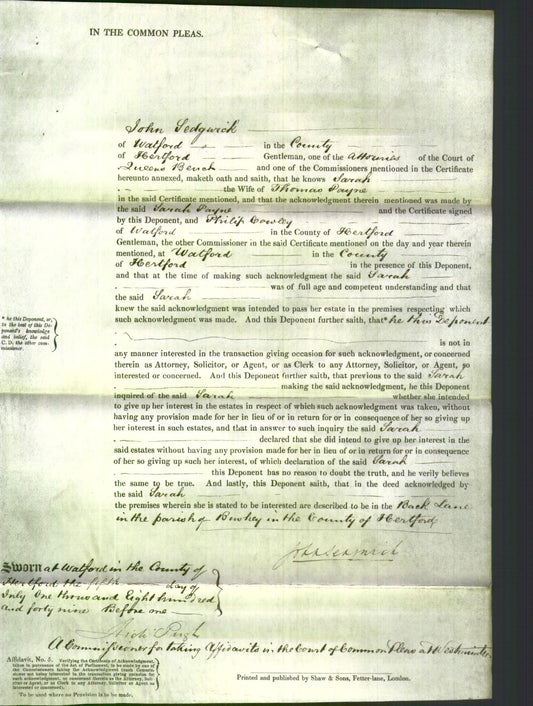 IN THE COMMON PLEAS.
John Sedgwick
of Watford in the County
of Hertford Gentleman, one of the Attornies of the Court of
Queens Bench and one of the Commissioners mentioned in the Certificate
hereunto annexed, maketh oath and saith, that he knows Sarah
the Wife of Thomas Payne
in the said Certificate mentioned, and that the acknowledgment therein mentioned was made by
the said Sarah Payne and the Certificate signed
by this Deponent, and Philip Cowley
of Watford in the County of Hertford
Gentleman, the other Commissioner in the said Certificate mentioned on the day and year therein
mentioned, at Watford in the County
of Hertford in the presence of this Deponent,
and that at the time of making such acknowledgment the said Sarah
was of full age and competent understanding and that
the said Sarah
knew the said acknowledgment was intended to pass her estate in the premises respecting which
such acknowledgment was made. And this Deponent further saith, that * he this Deponent
* he this Deponent, or,
to the best of this De-
ponent's knowledge
and belief, the said
C. D. the other com-
missioner.
is not in
any manner interested in the transaction giving occasion for such acknowledgment, or concerned
therein as Attorney, Solicitor, or Agent, or as Clerk to any Attorney, Solicitor, or Agent, so
interested or concerned. And this Deponent further saith, that previous to the said Sarah
making the said acknowledgment, he this Deponent
inquired of the said Sarah whether she intended
to give up her interest in the estates in respect of which such acknowledgment was taken, without
having any provision made for her in lieu of or in return for or in consequence of her so giving up
her interest in such estates, and that in answer to such inquiry the said Sarah
declared that she did intend to give up her interest in the
said estates without having any provision made for her in lieu of or in return for or in consequence
of her so giving up such interest, of which declaration of the said Sarah
this Deponent has no reason to doubt the truth, and he verily believes
the same to be true. And lastly, this Deponent saith, that in the deed acknowledged by
the said Sarah
the premises wherein she is stated to be interested are described to be in the Back Lane
in the parish of Bushey in the County of Hertford
Jno Sedgwick
Sworn at Watford in the County of
Hertford the fifth day of
July One thousand Eight hundred
and forty nine Before me
Pugh
A Commissioner for taking Affidavits in the Court of Common Pleas at Westminster
Affidavit, No. 5. Verifying the Certificate of Acknowledgment,
taken in pursuance of the Act of Parliament, to be made by one of
the Commissioners taking the Acknowledgment (such Commis-
sioner not being interested in the transaction giving occasion for
such acknowledgment, or concerned therein as Attorney, Soli-
citor or Agent, or as Clerk to any Attorney, Solicitor or Agent so
interested or concerned).
To be used where no Provision is to be made.
Printed and published by Shaw & Sons, Fetter-lane, London.